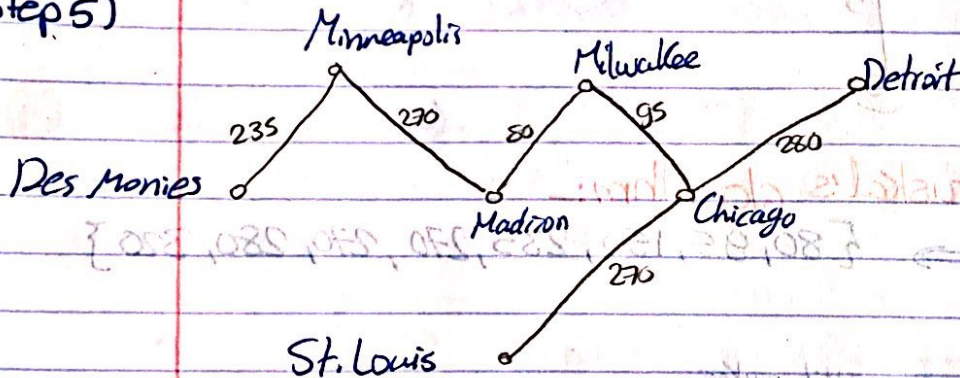 Step 5)
Minneapolis
Milwakee
Detroit
235
270
80
95
280
Des Monies
Madison
Chicago
270
St. Louis